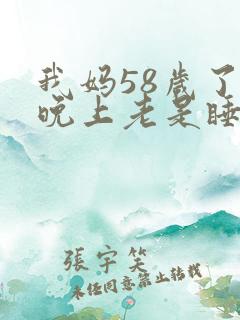 我妈58岁了
晚上老是睡
張宇笑
未经同意禁止转载